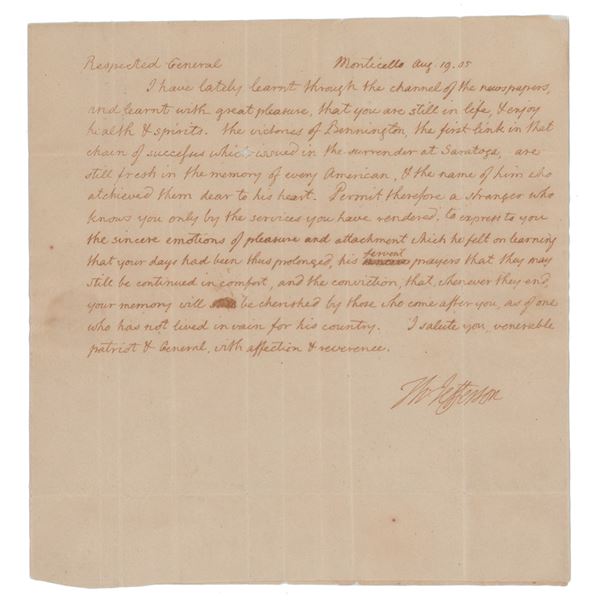 Respected General Monticello Aug. 19. 05
I have lately learnt through the channel of the newspapers,
and learnt with great pleasure, that you are still in life, & enjoy
health & spirits. the victories of Bennington, the first link in that
chain of successes which issued in the surrender at Saratoga, are
still fresh in the memory of every American, & the name of him who
atchieved them dear to his heart. Permit therefore a stranger who
knows you only by the services you have rendered, to express to you
the sincere emotions of pleasure and attachment which he felt on learning
that your days had been thus prolonged, his fervent prayers that they may
still be continued in comfort, and the conviction, that whenever they end,
your memory will be cherished by those who come after you, as of one
who has not lived in vain for his country. I salute you, venerable
patriot & General, with affection & reverence.
Th Jefferson